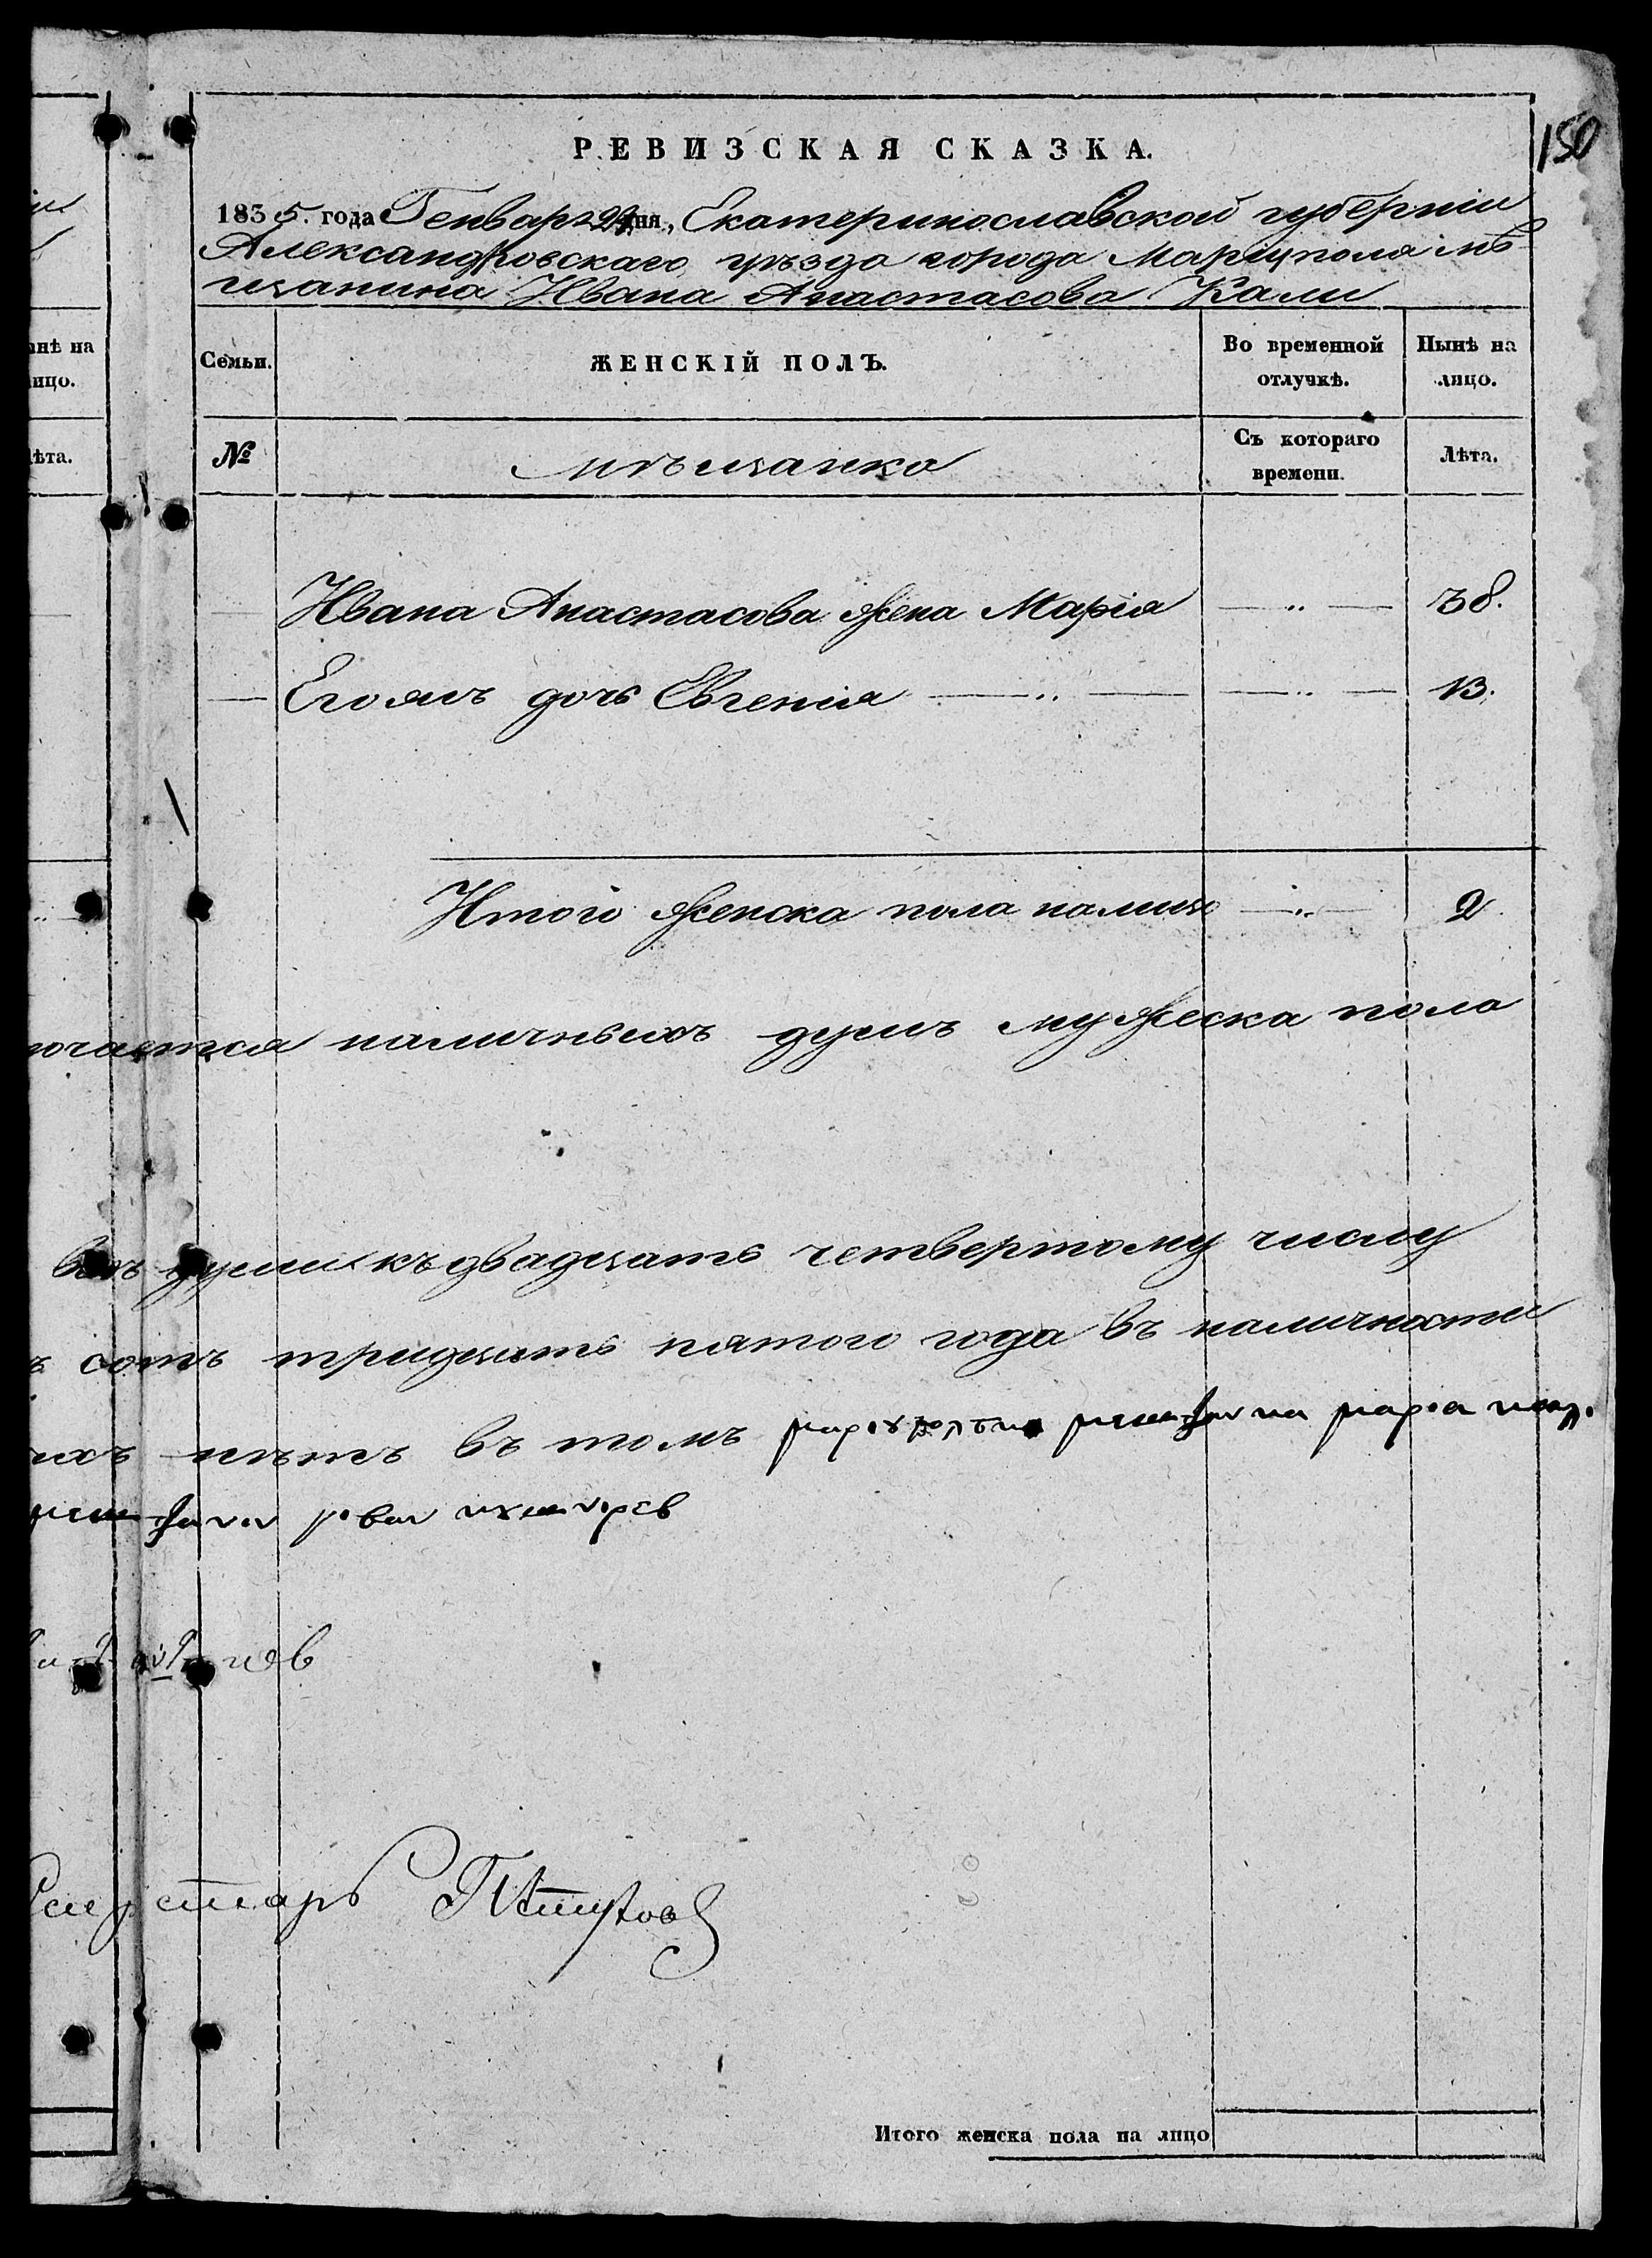 150
РЕВИЗСКАЯ СКАЗКА.
1835. года Генваря 24 дня, Екатеринославской губерніи
Александровскаго уѣзда города Маріуполя мѣ
щанина Ивана Анастасова Кали
нѣ на
лицо.
Семьи.
ЖЕНСКІЙ ПОЛЪ.
Во временной
отлучкѣ.
Нынѣ на
лицо.
лѣта.
№
мѣщанка
Съ котораго
времени.
Лѣта.
Ивана Анастасова жена Марія 38.
Егожъ дочь Евгенія 13.
Итого женска пола налицо 2.
ючается наличныхъ душъ мужеска пола
души къ двадцать четвертому числу
сотъ тридцать пятого года въ наличности
ихъ нѣтъ въ томъ
Регистаръ Пѣтуховъ
Итого женска пола на лицо